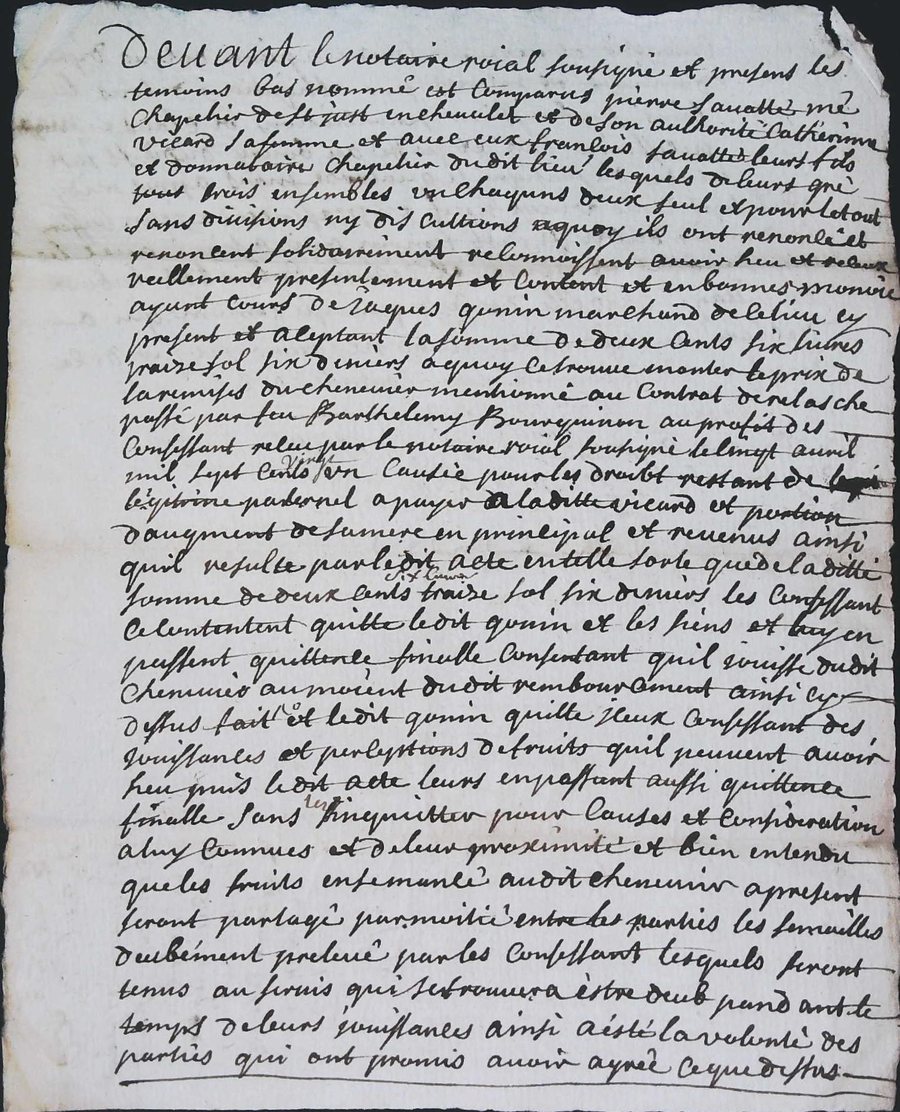 Devant le notaire roial sousigné et presens les
temoins bas nommé est Comparus pierre sauatte me
Chapelier de st just en cheualet et de son authorité Catherinne
vicard sa femme et auec eux francois sauatte leurs fils
et donnataire Chapelier dudit lieu lesquels de leurs gré
tous trois ensembles un Chaquns deux seul et pour le tout
sans divisions ny discuttions aquoy ils ont renoncé et
renoncent solidairement reconnoissent auoir heu et receux
reellement presentement et Content et en bonnes monoie
ayant Cours de Jaques gonin marchand de ce lieu cy
present et aceptant la somme de deux Cents six liures
traize sol six deniers a quoy ce trouue monter le prix de
la remises du cheneuier mentionné au Contrat de relasche
passé par feu Barthelemy Bourguinon au profit des
Confessant receu par le notaire roial sousigné le vingt auril
mil sept Cents vingt un Causée pour les droibt restant de
legitime paternel a payer a laditte vicard et portion
daugment de sa mere en principal et revenus ainsi
quil resulte par ledit acte en telle sorte que de laditte
somme de deux Cents six liures traize sol six deniers les Confessant
ce contentent quitte ledit gonin et les siens et luy en
passent quittence finalle Consentant quil jouisse dudit
Cheneuier au moient dudit remboursement ainsi cy
dessus fait et ledit gonin quitte iceux Confessant des
jouissances et perceptions de fruits quil peuuent auoir
heu puis ledit acte leurs en passant aussi quittence
finalle sans sinquitter pour Causes et Consideration
a luy Connues et de leur proximité et bien entendu
que les fruits ensemancé audit cheneuier a present
seront partagé par moitié entre les parties les semailles
deubément preleué par les Confessant lesquels seront
tenus au seruis qui se trouuera estre deub pandant le
temps de leurs jouissances ainsi a esté la volonté des
parties qui ont promis auoir agreé ce que dessus